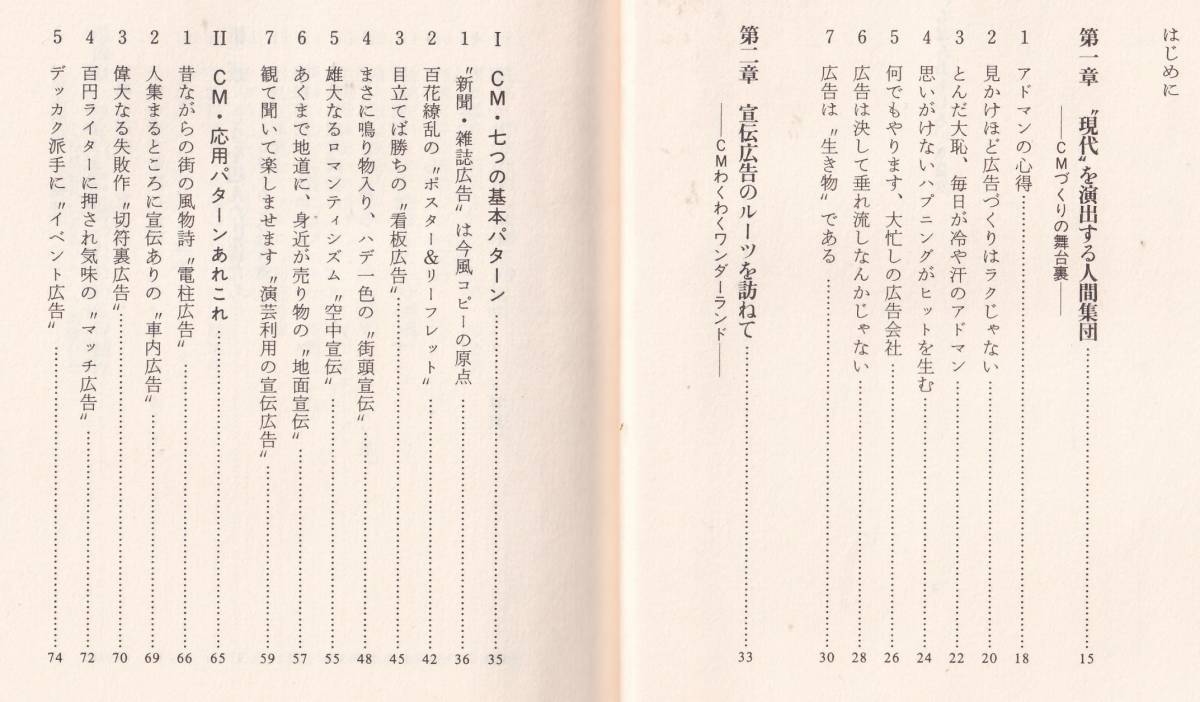 はじめに
第一章　〝現代〟を演出する人間集団……15
――CMづくりの舞台裏――
1　アドマンの心得……18
2　見かけほど広告づくりはラクじゃない……20
3　とんだ大恥、毎日が冷や汗のアドマン……22
4　思いがけないハプニングがヒットを生む……24
5　何でもやります、大忙しの広告会社……26
6　広告は決して垂れ流しなんかじゃない……28
7　広告は〝生き物〟である……30
第二章　宣伝広告のルーツを訪ねて……33
――CMわくわくワンダーランド――
I　CM・七つの基本パターン……35
1　〝新聞・雑誌広告〟は今風コピーの原点……36
2　百花繚乱の〝ポスター＆リーフレット〟……42
3　目立てば勝ちの〝看板広告〟……45
4　まさに鳴り物入り、ハデ一色の〝街頭宣伝〟……48
5　雄大なるロマンティシズム〝空中宣伝〟……55
6　あくまで地道に、身近が売り物の〝地面宣伝〟……57
7　観て聞いて楽しませます〝演芸利用の宣伝広告〟……59
II　CM・応用パターンあれこれ……65
1　昔ながらの街の風物詩〝電柱広告〟……66
2　人集まるところに宣伝ありの〝車内広告〟……69
3　偉大なる失敗作〝切符裏広告〟……70
4　百円ライターに押され気味の〝マッチ広告〟……72
5　デッカク派手に〝イベント広告〟……74